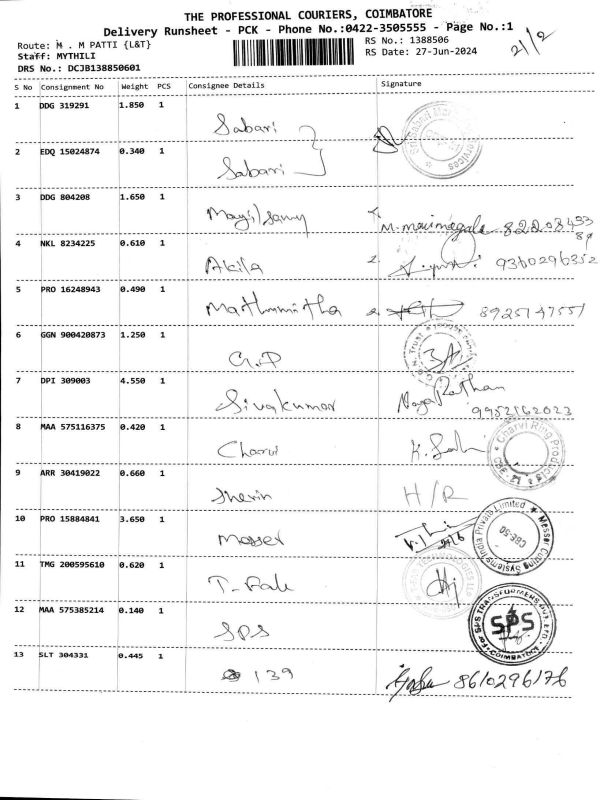 THE PROFESSIONAL COURIERS, COIMBATORE
Delivery Runsheet - PCK - Phone No.:0422-3505555 - Page No.:1
Route: M . M PATTI {L&T}
RS No.: 1388506
2/2
Staff: MYTHILI
RS Date: 27-Jun-2024
DRS No.: DCJB138850601
S No Consignment No Weight PCS Consignee Details Signature
1 DDG 319291 1.850 1 Sabari
2 EDQ 15024874 0.340 1 Sabari
3 DDG 804208 1.650 1 Mayilsamy
4 NKL 8234225 0.610 1 Akila 9360296352
5 PRO 16248943 0.490 1 8925147551
6 GGN 900420873 1.250 1 G.D
7 DPI 309003 4.550 1 Sivakumar
9952162023
8 MAA 575116375 0.420 1 Charvi
Charvi Ring Products
9 ARR 30419022 0.660 1 Sherin H/R
10 PRO 15884841 3.650 1 Messer
11 TMG 200595610 0.620 1
12 MAA 575385214 0.140 1 SPS
SPS TRANSFORMERS PVT. LTD.
SPS
COIMBATORE
13 SLT 304331 0.445 1 139 8610296176